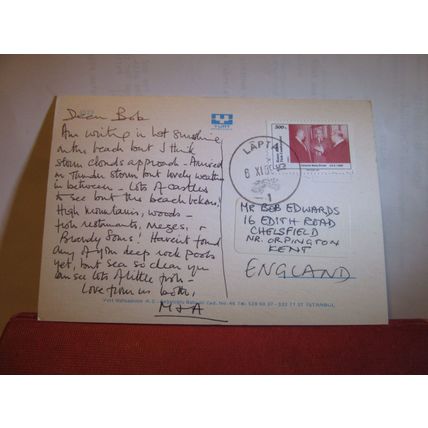 Dear Bob
Am writing in hot sunshine
on the beach but I think
storm clouds approach - Arrived
in thunder storm but lovely weather
in between - Lots of castles
to see but the beach beckons!
High mountains, woods -
fish restaurants, Mezes, +
Brandy Sours! Haven't found
any of your deep rock pools
yet, but sea so clear you
can see lots of little fish -
Love from us both,
M & A
LAPTA
6 XI
1
500
MR BOB EDWARDS
16 EDITH ROAD
CHELSFIELD
NR. ORPINGTON
KENT
ENGLAND
Cad. No: 46 Tel. 528 50 37 - 527 71 57 İSTANBUL